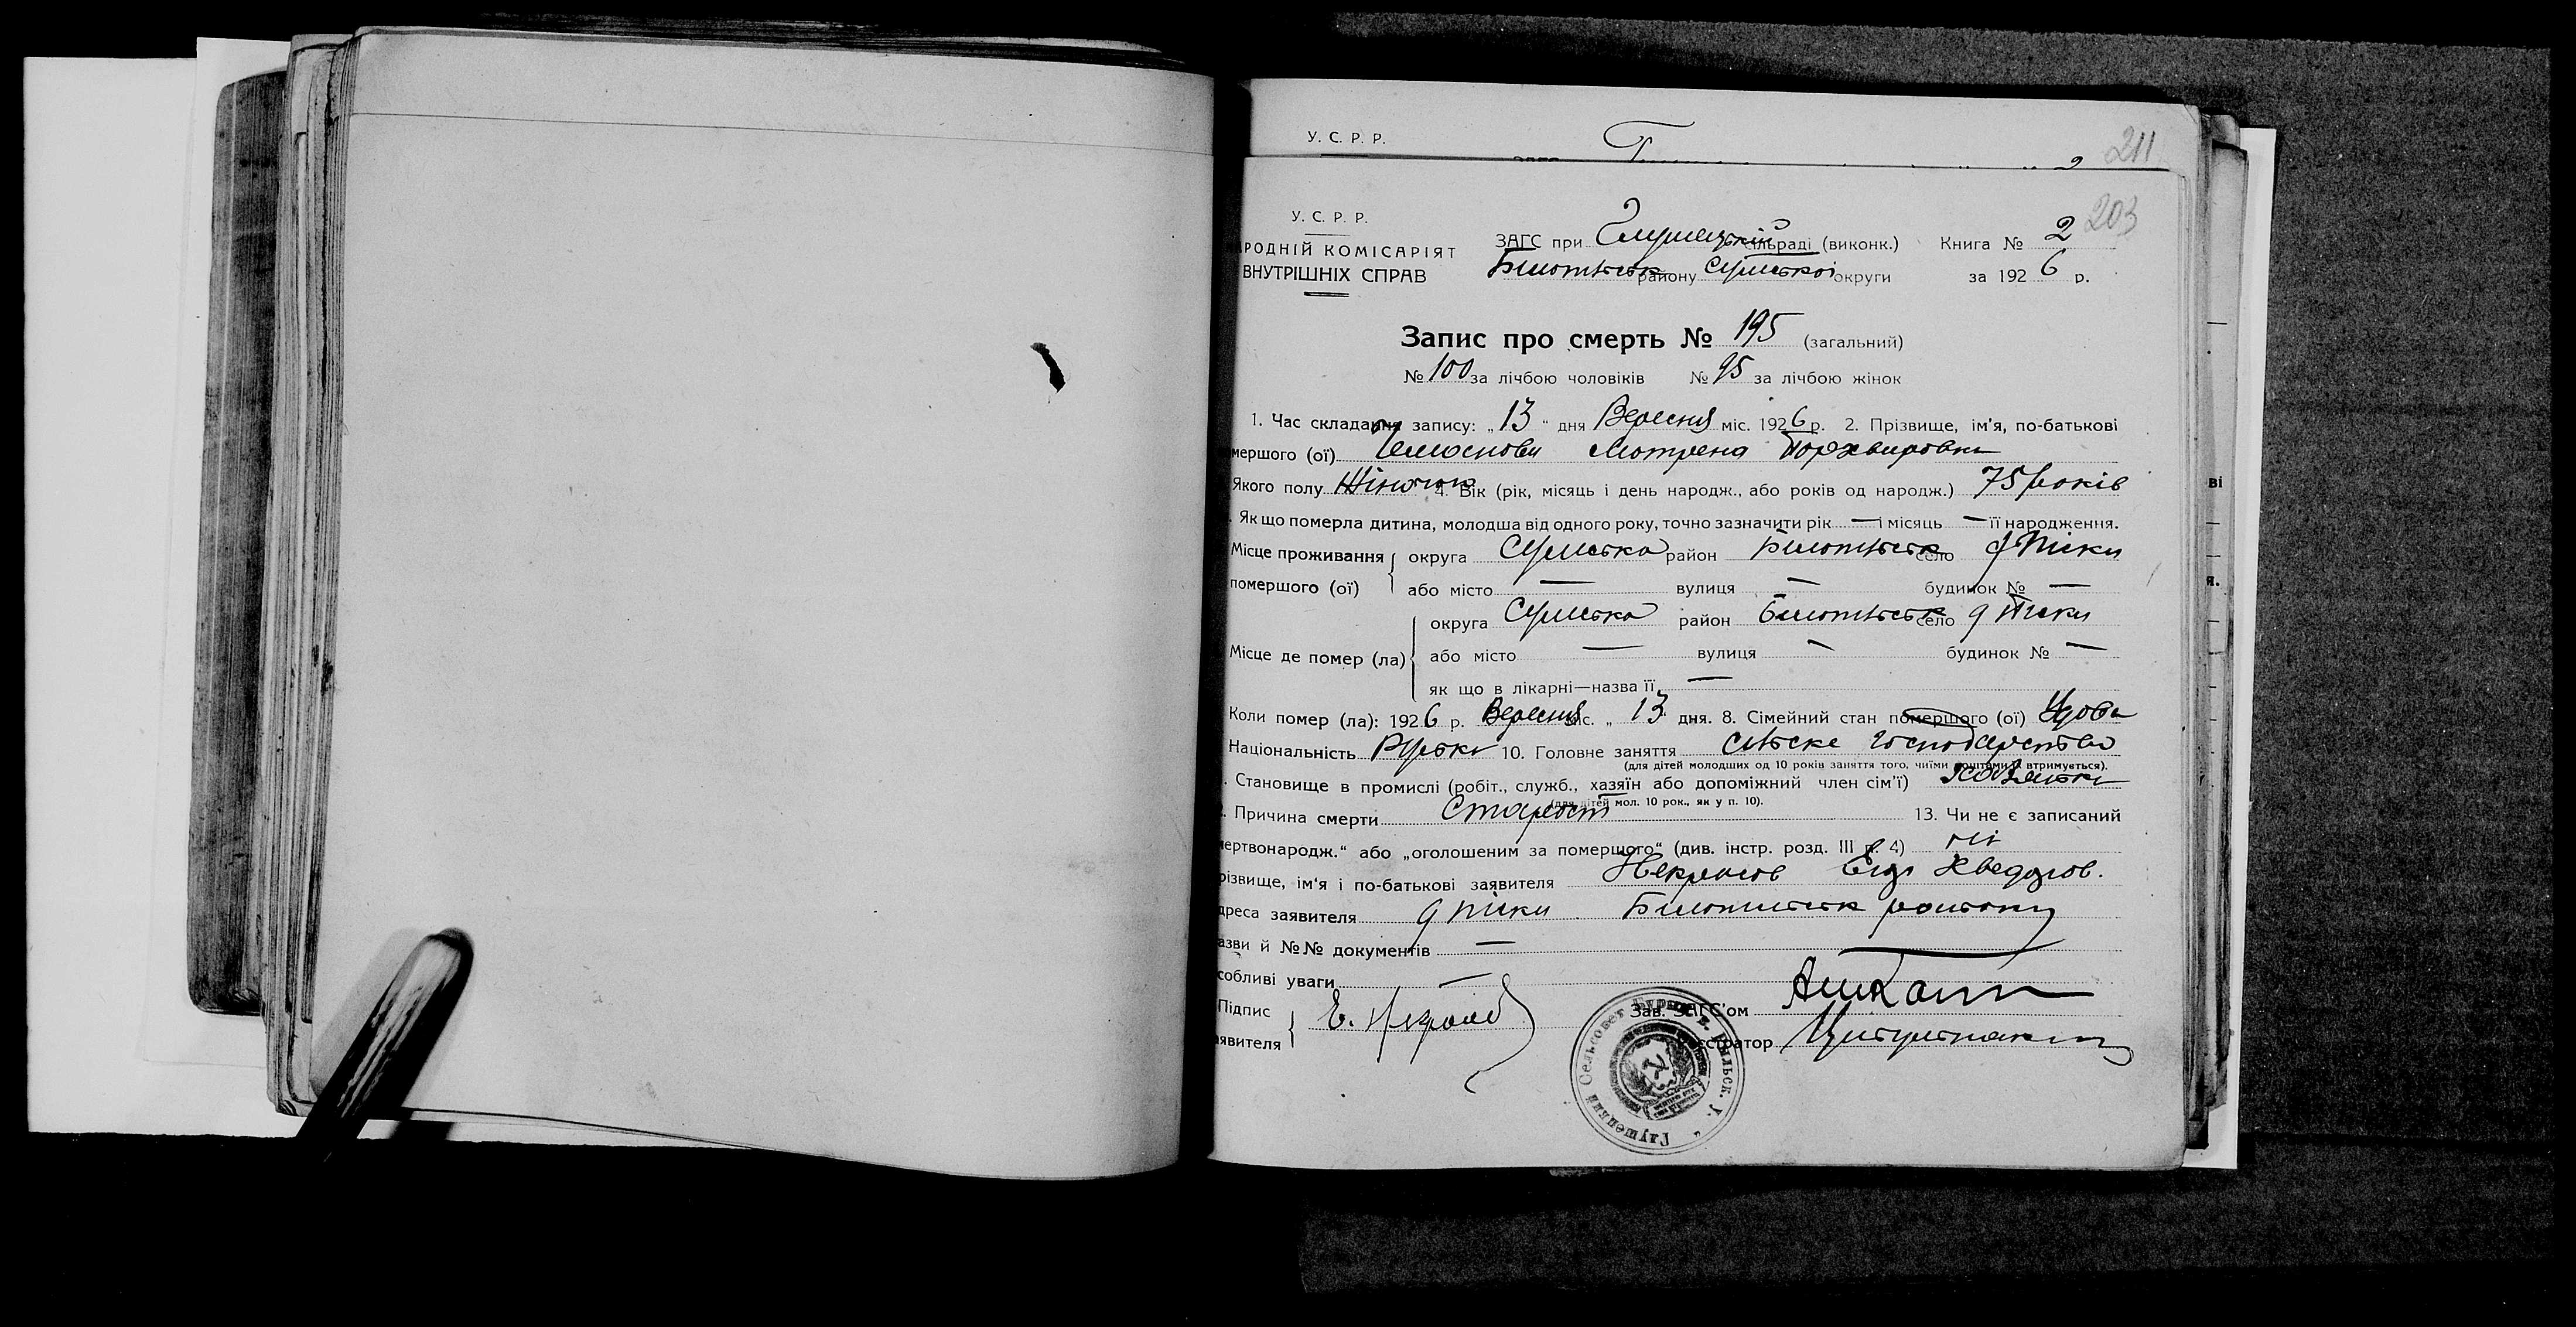 У. С. Р. Р.
211
203
У. С. Р. Р.
РОДНІЙ КОМІСАРІЯТ
ВНУТРІШНІХ СПРАВ
ЗАГС при Глушецькій сільраді (виконк.) Книга № 2
району Сумської округи за 1926 р.
Запис про смерть № 195 (загальний)
№ 100 за лічбою чоловіків № 95 за лічбою жінок
1. Час складання запису: „13“ дня Вересня міс. 1926 р. 2. Прізвище, ім'я, по-батькові
мершого (ої) Мотрена
Якого полу 4. Вік (рік, місяць і день народж., або років од народж.) 75 років
. Як що померла дитина, молодша від одного року, точно зазначити рік — і місяць — її народження.
Місце проживання округа Сумська район село д Піски
помершого (ої) або місто — вулиця — будинок № —
округа Сумська район село д Піски
Місце де помер (ла) або місто — вулиця — будинок № —
як що в лікарні—назва її —
Коли помер (ла): 1926 р. Вересня міс. „13“ дня. 8. Сімейний стан помершого (ої) Удова
Національність Руська 10. Головне заняття сільске господарство
(для дітей молодших од 10 років заняття того, чиїми коштами її втримується).
. Становище в промислі (робіт., служб., хазяїн або допоміжний член сім'ї)
(для дітей мол. 10 рок., як у п. 10).
. Причина смерти Старость 13. Чи не є записаний
мертвонародж.“ або „оголошеним за помершого“ (див. інстр. розд. III п. 4) ні
різвище, ім'я і по-батькові заявителя Некрасов Хведоров.
дреса заявителя д Піски району
азви й №№ документів —
собливі уваги —
Підпис Е. Некрасов Зав. ЗАГС'ом
явителя Реєстратор
Глушецкий Сельсовет Бурин. в. Рыльск. у.
ві
я.